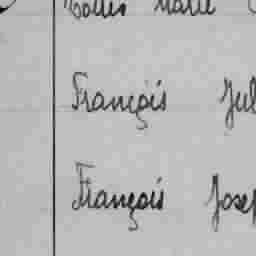 Marie
François Jul
François Josep